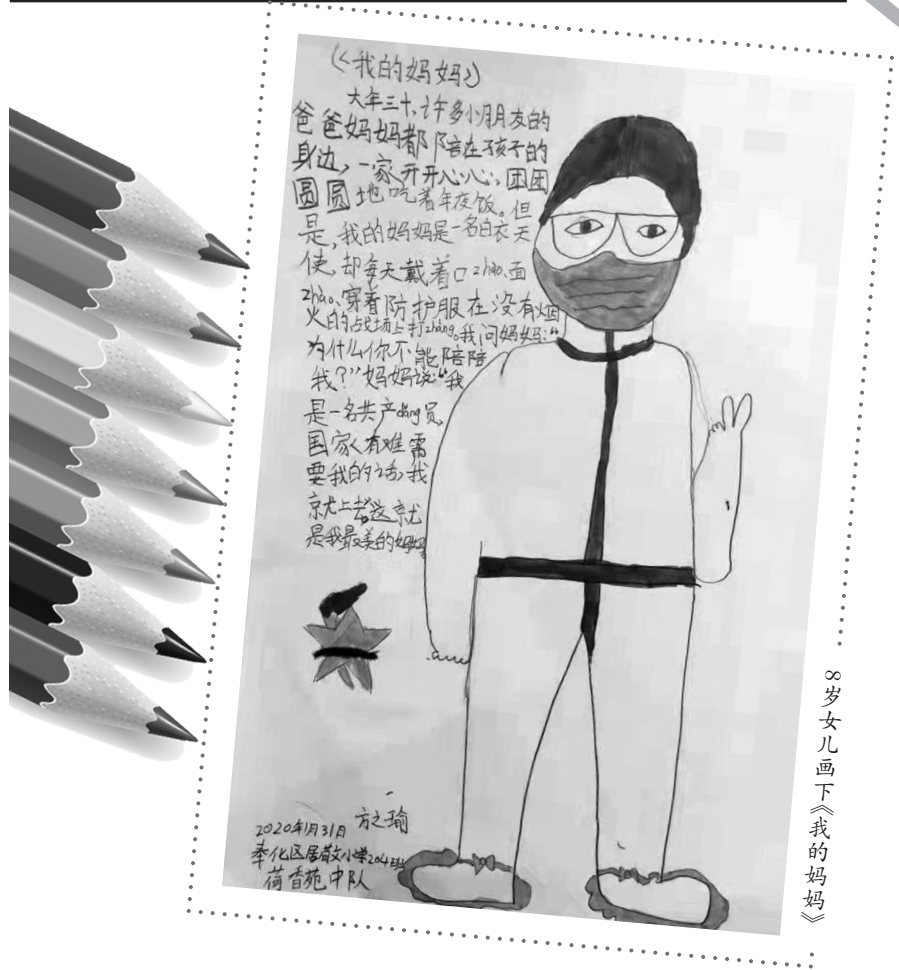 《我的妈妈》
大年三十,许多小朋友的
爸爸妈妈都陪在孩子的
身边,一家人开开心心、团团
圆圆地吃着年夜饭。但
是,我的妈妈是一名白衣天
使,却每天戴着口zhào、面
zhào、穿着防护服在没有烟
火的战场上打zhàng。我问妈妈:“
为什么你不能陪陪
我?”妈妈说:“我
是一名共产dǎng员,
国家有难需
要我的话,我
就上去。”这就
是我最美的妈妈
方之瑜
2020年1月31日
奉化区居敬小学204班
荷香苑中队
8岁女儿画下《我的妈妈》